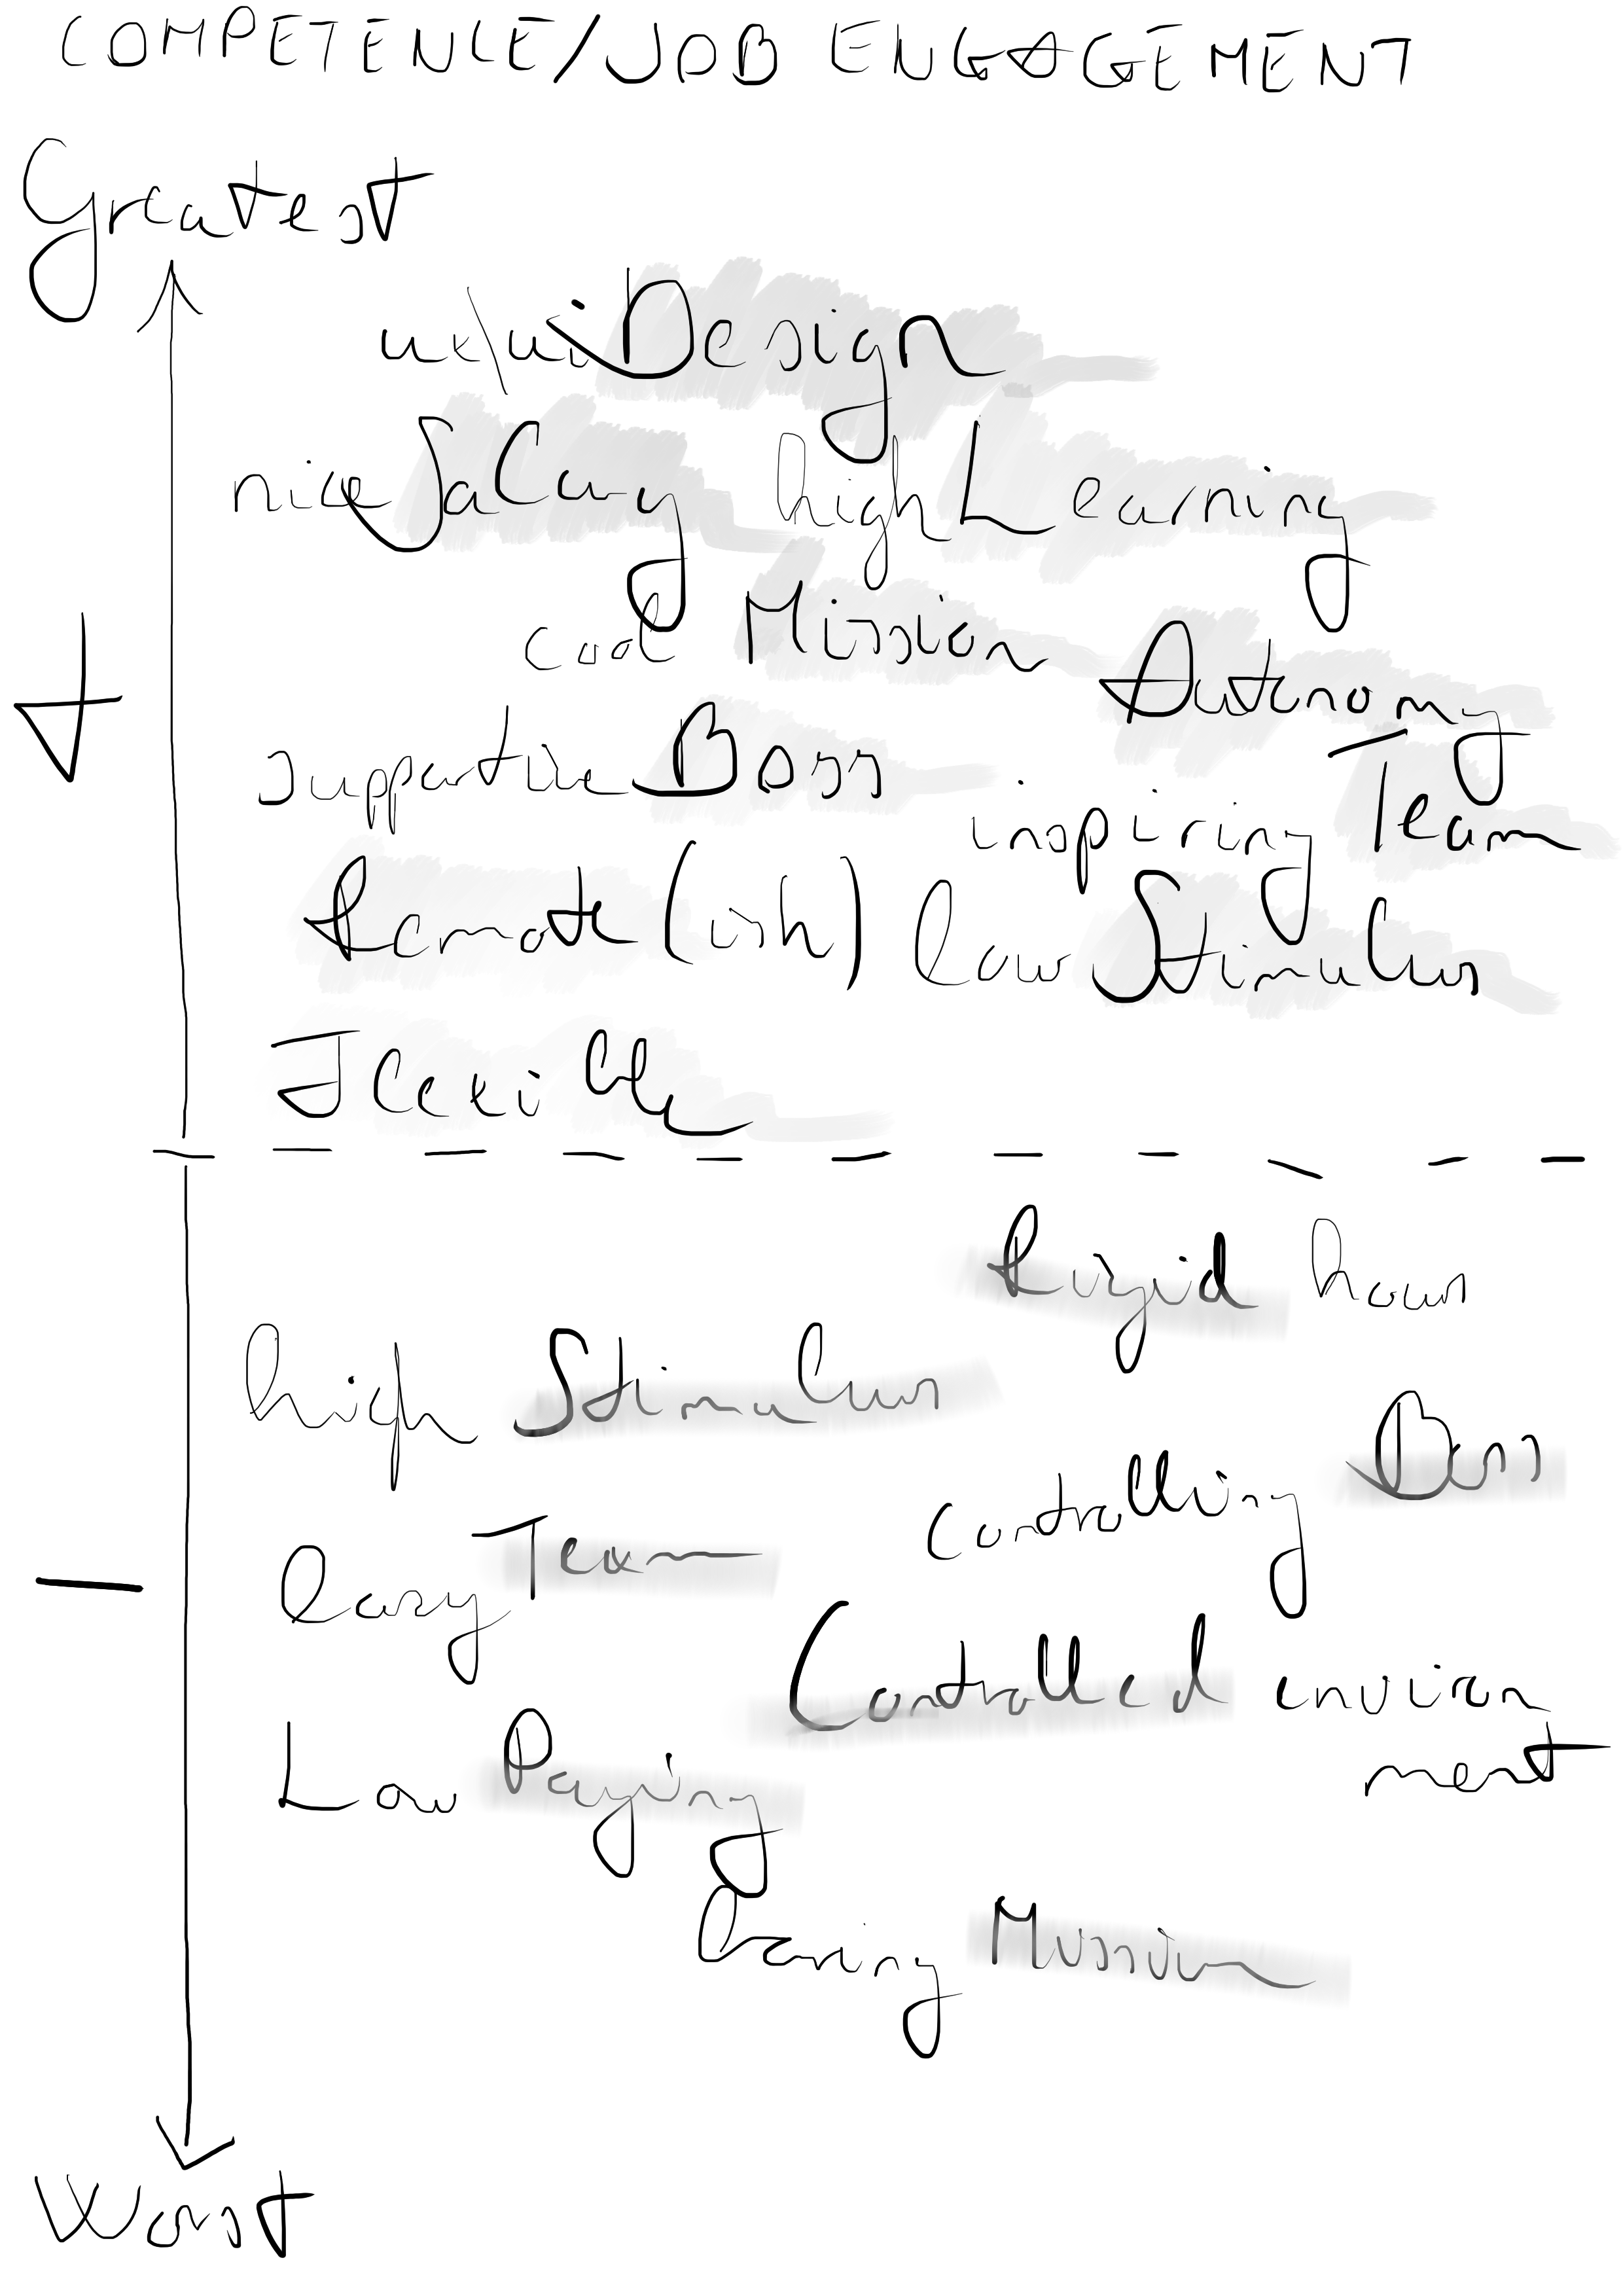 COMPETENCE/JOB ENGAGEMENT
Greatest
ux/ui Design
nice Salary high Learning
cool Mission
Autonomy
+
supportive Boss
inspiring Team
Remote (ish) low Stimulus
Flexible
Rigid hours
high Stimulus
controlling Boss
lazy Team
-
Controlled environ
ment
Low Paying
boring Mission
Worst